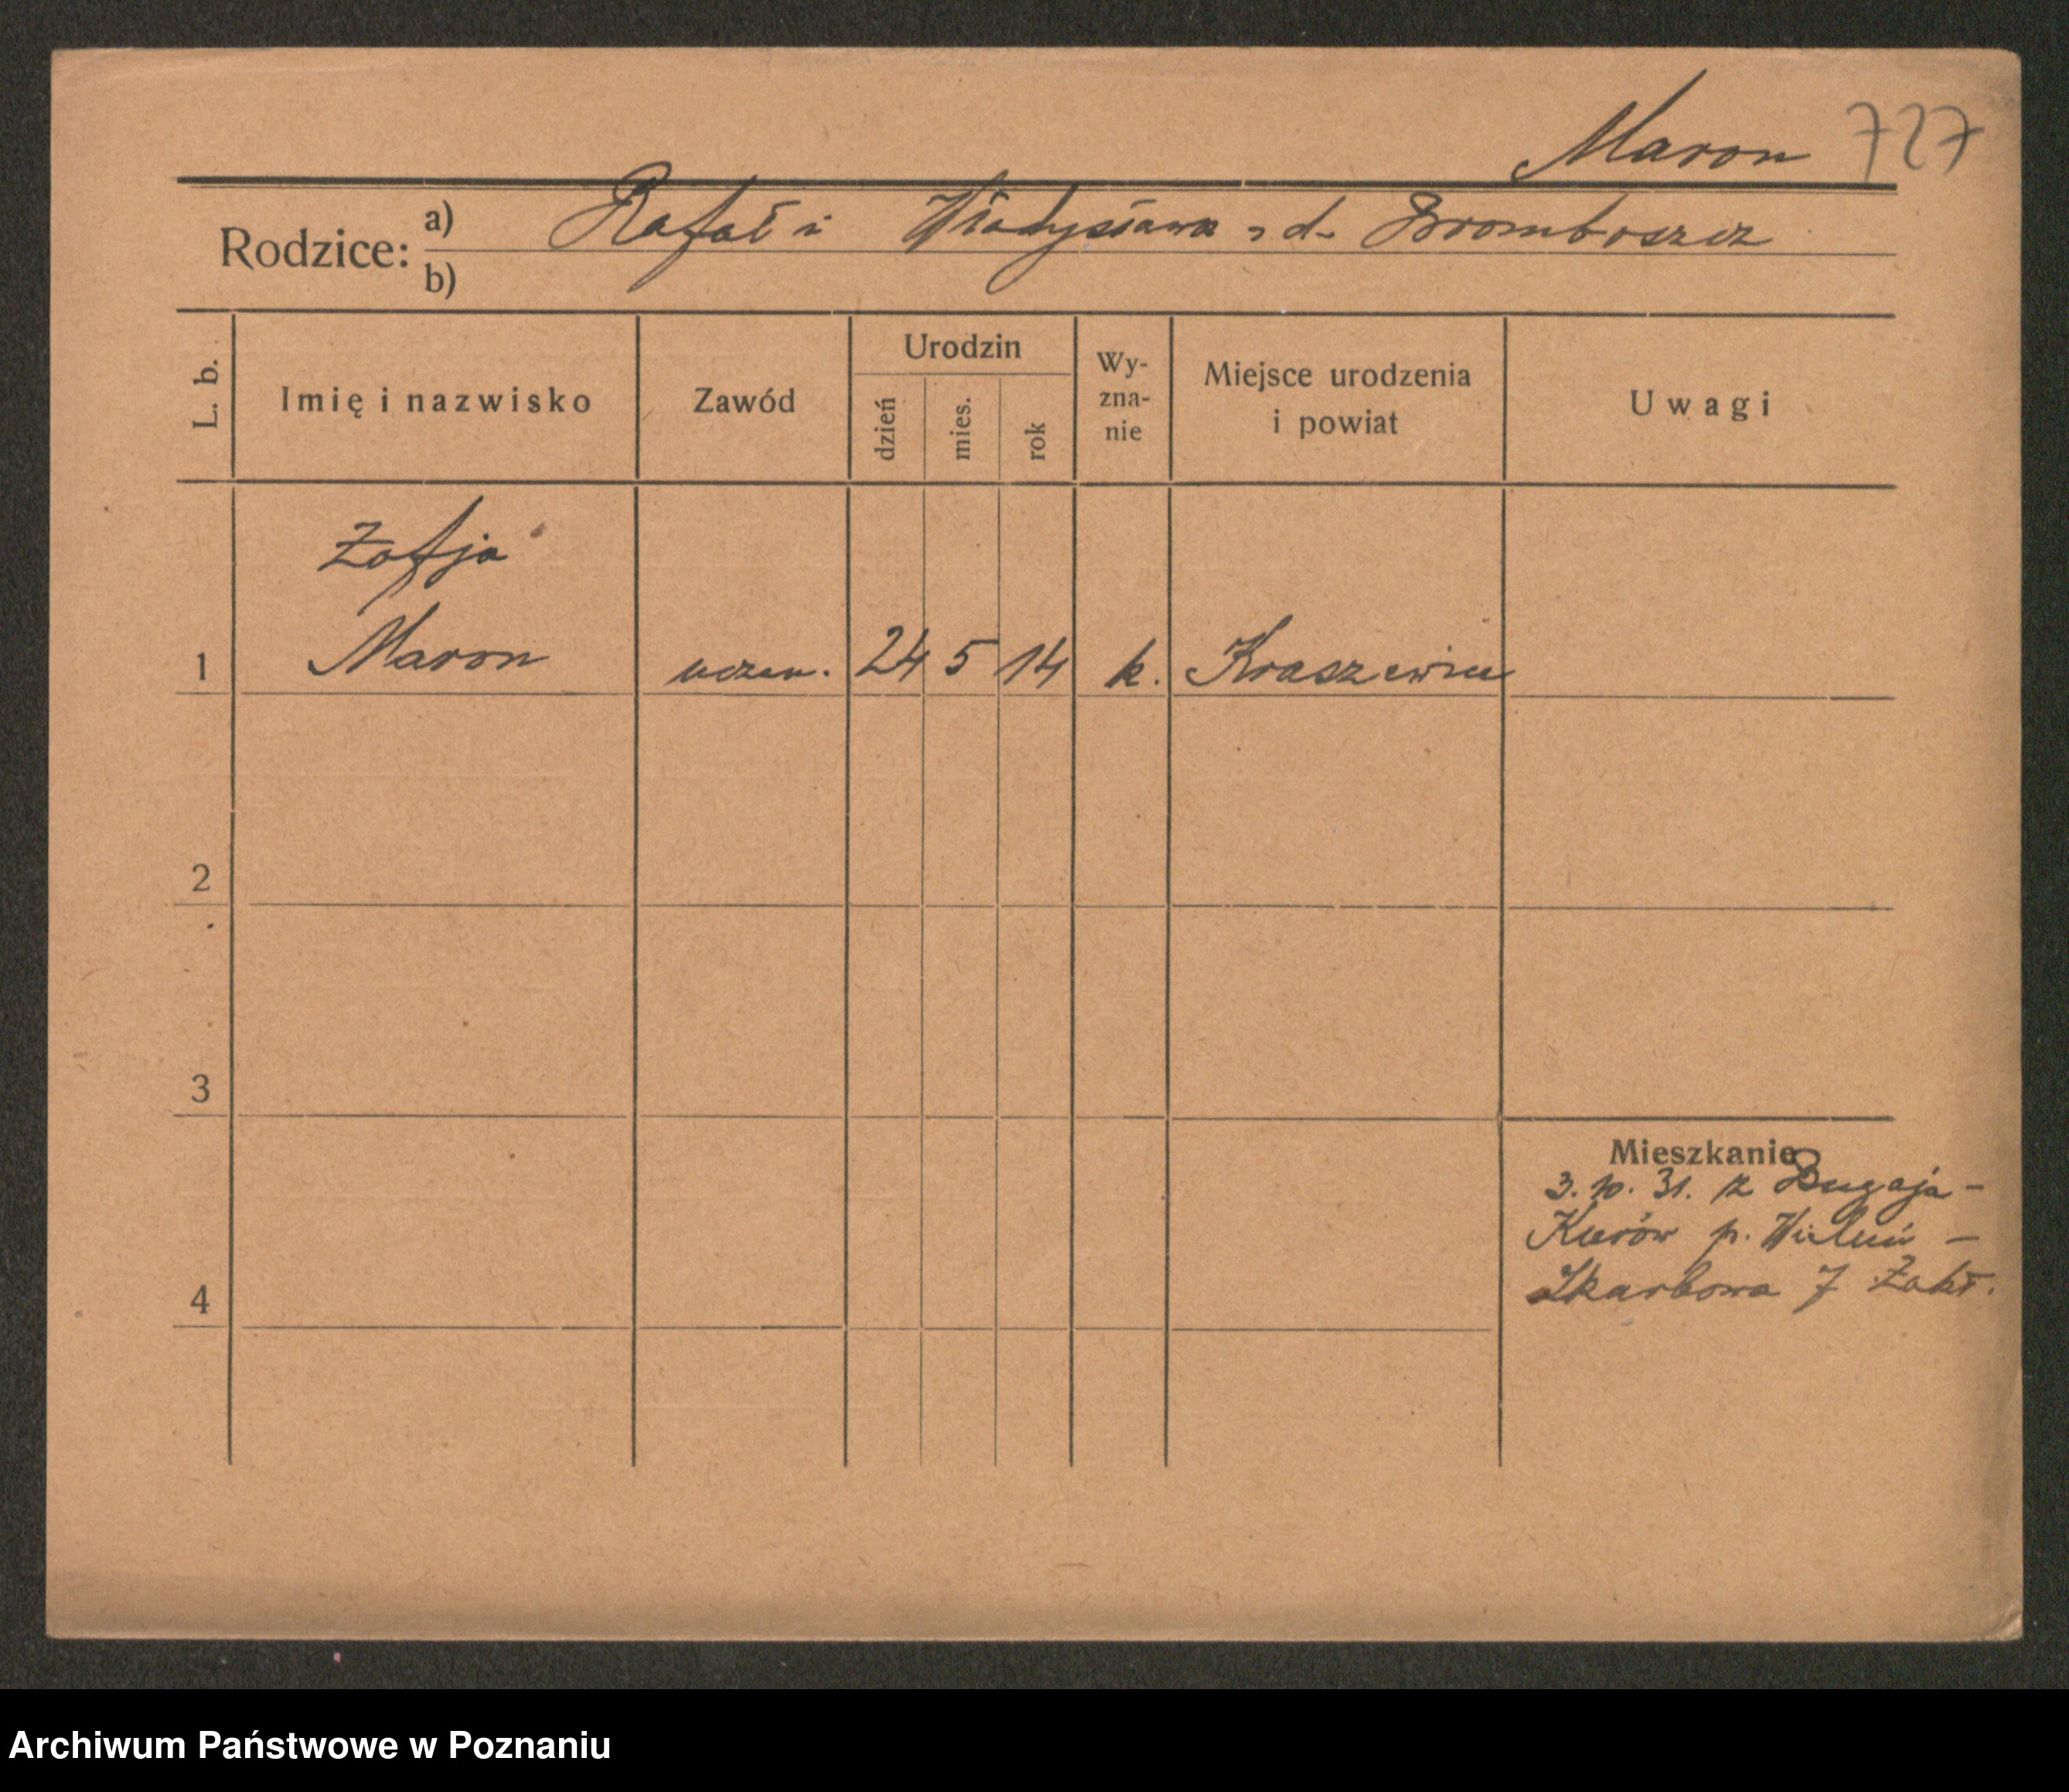 Maron 727
Rodzice: a) Rafał i Władysława z d. Bromboszcz
b)
L. b.
Imię i nazwisko
Zawód
Urodzin
dzień
mies.
rok
Wy-
zna-
nie
Miejsce urodzenia
i powiat
Uwagi
Zofja
1 Maron uczen. 24 5 14 k. Kraszewice
2
3
4
Mieszkanie
3. 10. 31. z Bugaja -
Kurów p. Wieluń -
Skarbowa 7 Zakł.
Archiwum Państwowe w Poznaniu